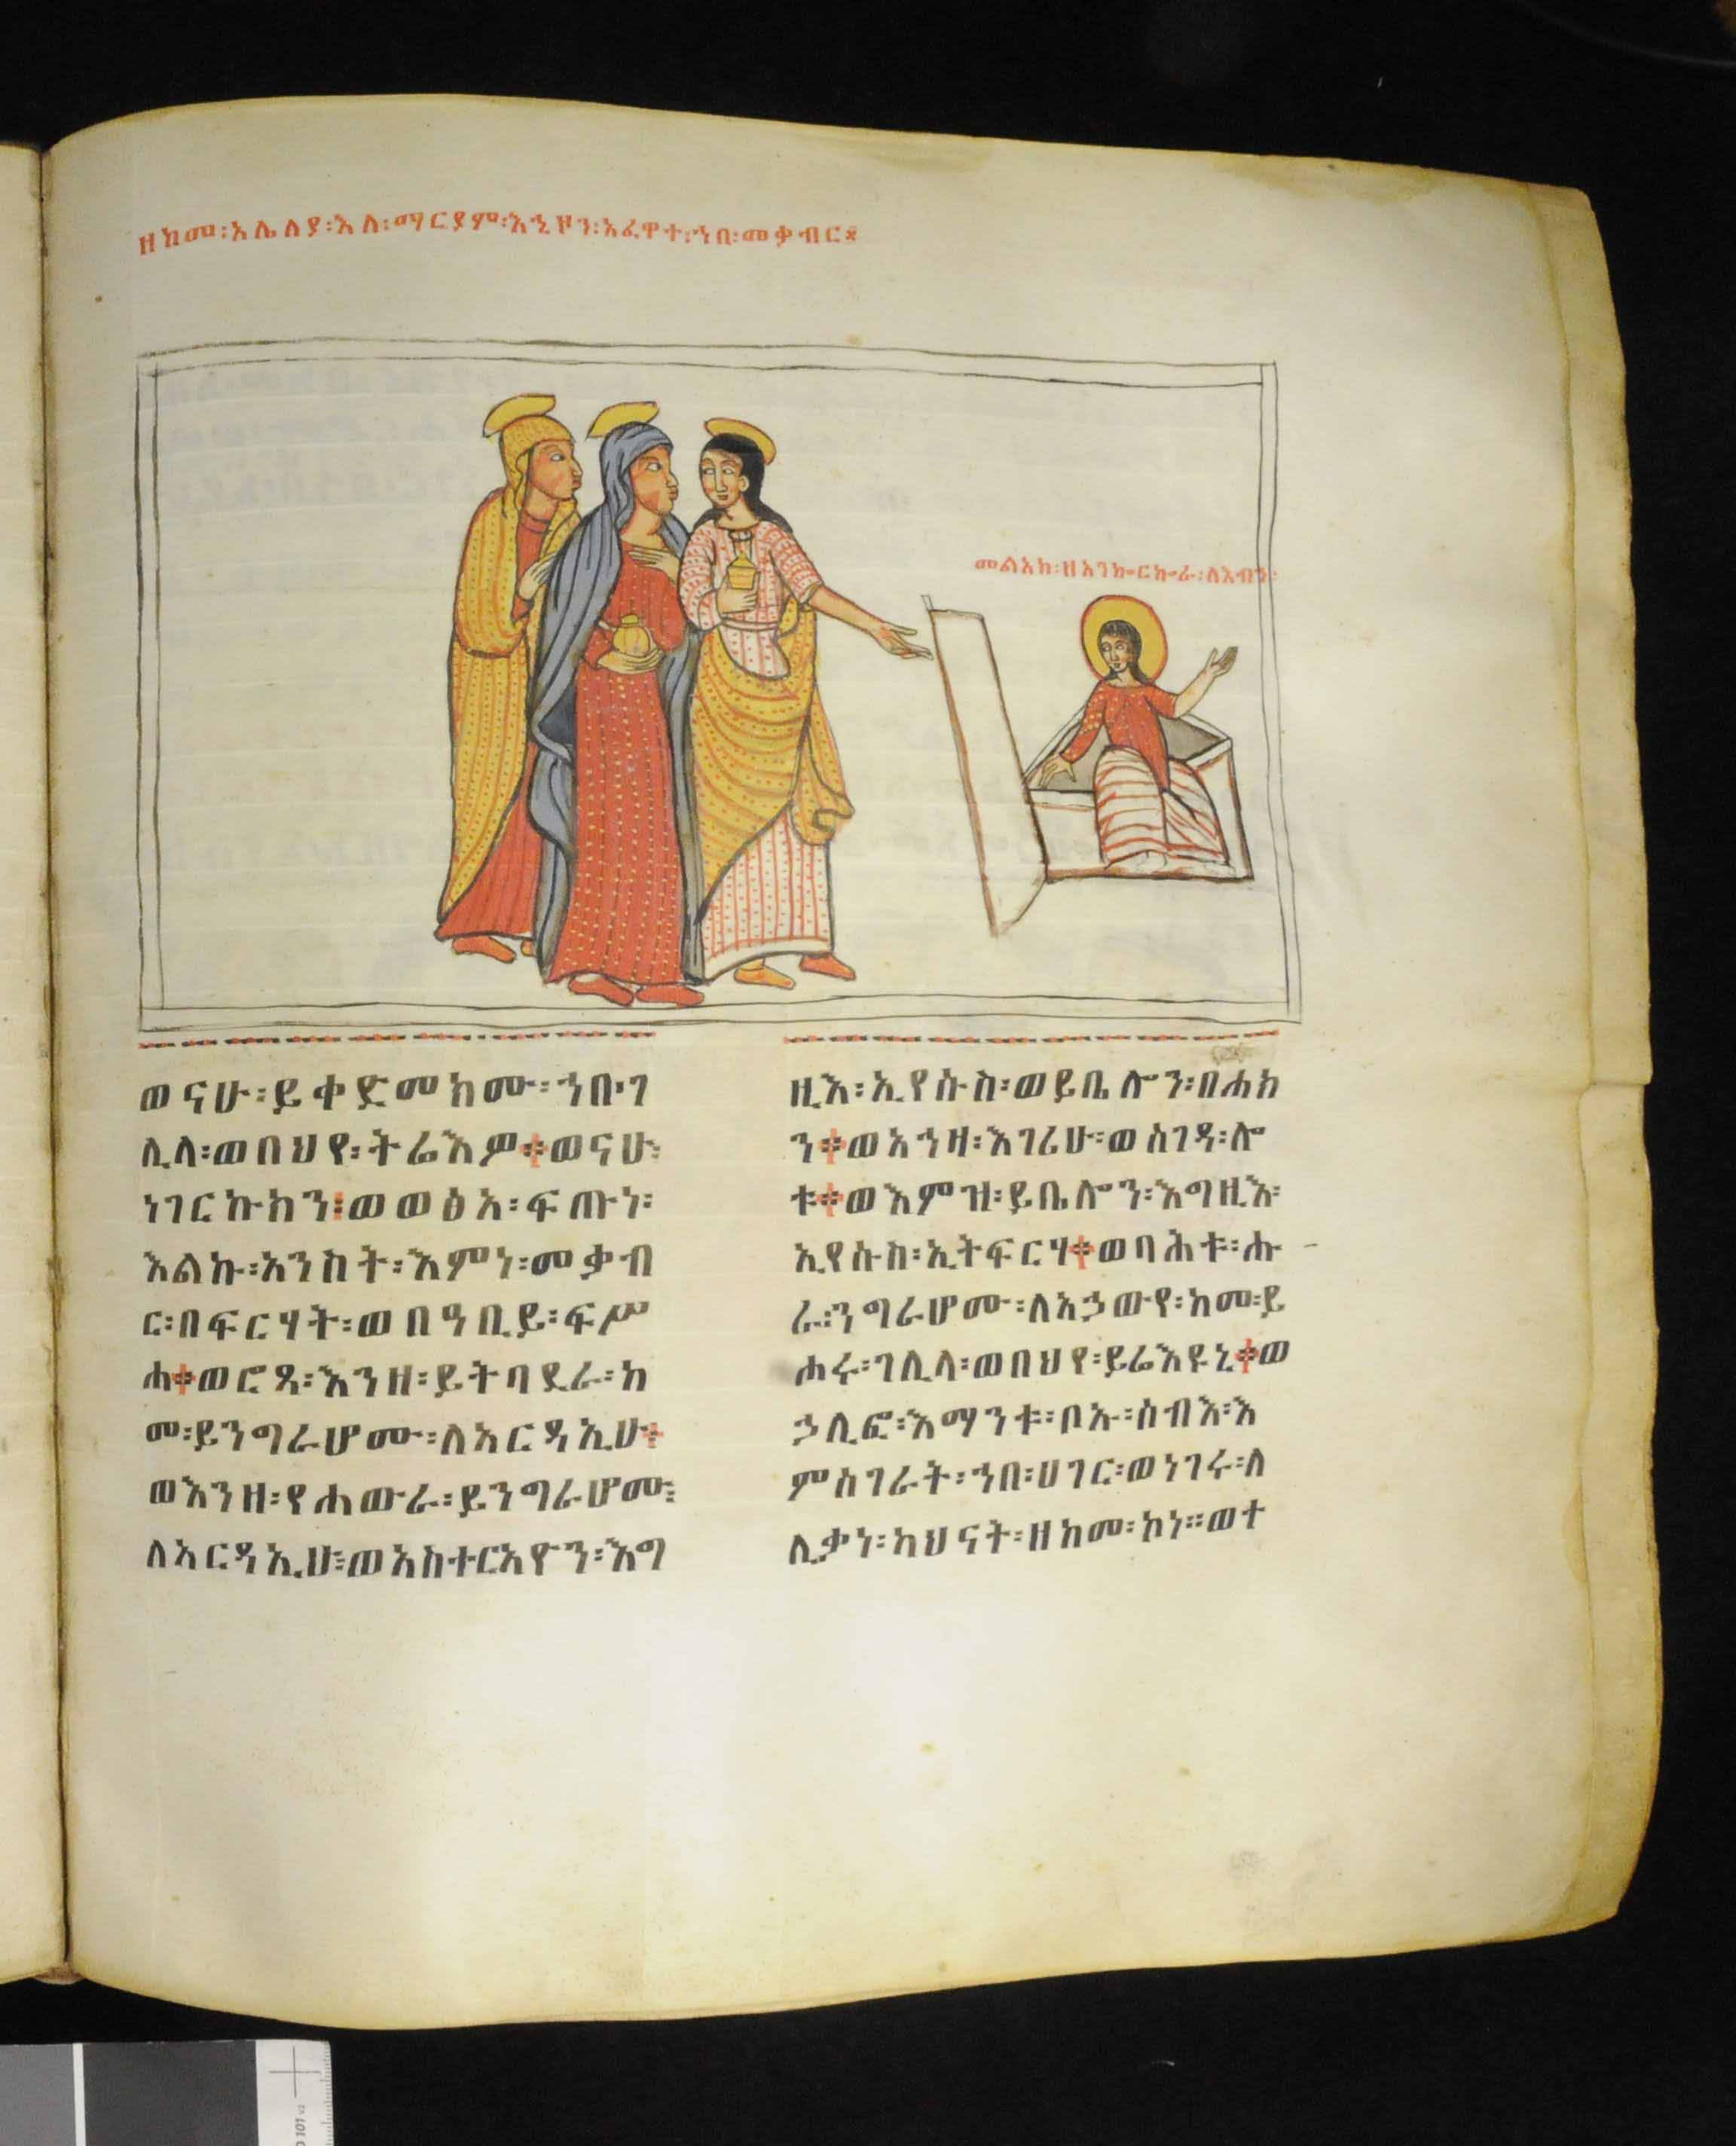 ዘከመ፡አሌለያ፡እለ፡ማርያም፡እኂዞን፡አፈዋተ፡ኀበ፡መቃብር፨
መልአክ፡ዘአንኰርኰራ፡ለእብን፡
ወናሁ፡ይቀድመክሙ፡ኀበ፡ገ
ሊላ፡ወበህየ፡ትሬእዎ፨ወናሁ፡
ነገርኩክን፨ወወፅአ፡ፍጡነ፡
እልኩ፡አንስት፡እምነ፡መቃብ
ር፡በፍርሃት፡ወበዓቢይ፡ፍሥ
ሐ፨ወሮጻ፡እንዘ፡ይትባደራ፡ከ
መ፡ይንግራሆሙ፡ለአርዳኢሁ፨
ወእንዘ፡የሐውራ፡ይንግራሆሙ፡
ለአርዳኢሁ፡ወአስተርአዮን፡እግ
ዚእ፡ኢየሱስ፡ወይቤሎን፡በሐክ
ን፨ወአኀዛ፡እገሪሁ፡ወሰገዳ፡ሎ
ቱ፨ወእምዝ፡ይቤሎን፡እግዚእ፡
ኢየሱስ፡ኢትፍርሃ፨ወባሕቱ፡ሑ
ራ፡ንግራሆሙ፡ለአኃውየ፡ከመ፡ይ
ሐሩ፡ገሊላ፡ወበህየ፡ይሬእዩኒ፨ወ
ኃሊፎ፡እማንቱ፡ቦኡ፡ሰብእ፡እ
ምሰገራት፡ኀበ፡ሀገር፡ወነገሩ፡ለ
ሊቃነ፡ካህናት፡ዘከመ፡ኮነ።ወተ